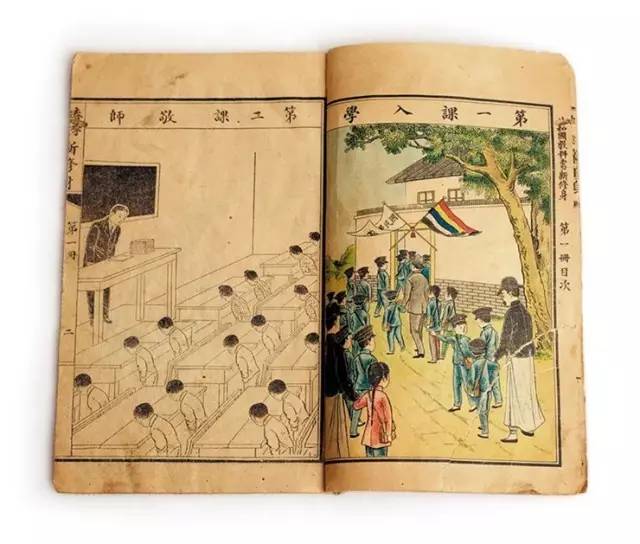 第一課入學
國教科書新修身 第一冊目次
第二課敬師
新修身 第一冊 二